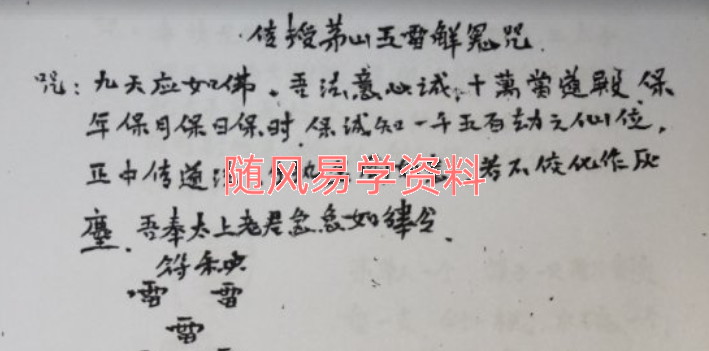 传授茅山五雷解冤咒
咒：九天应如佛。吾法意心诚，十萬当道殿，保
年保月保日保时，保诚知一千五百动之仙位，
正中传道 若不依化作灰
塵。吾奉太上老君急急如律令。
符秘
嚅 嚅
嚅
随风易学资料